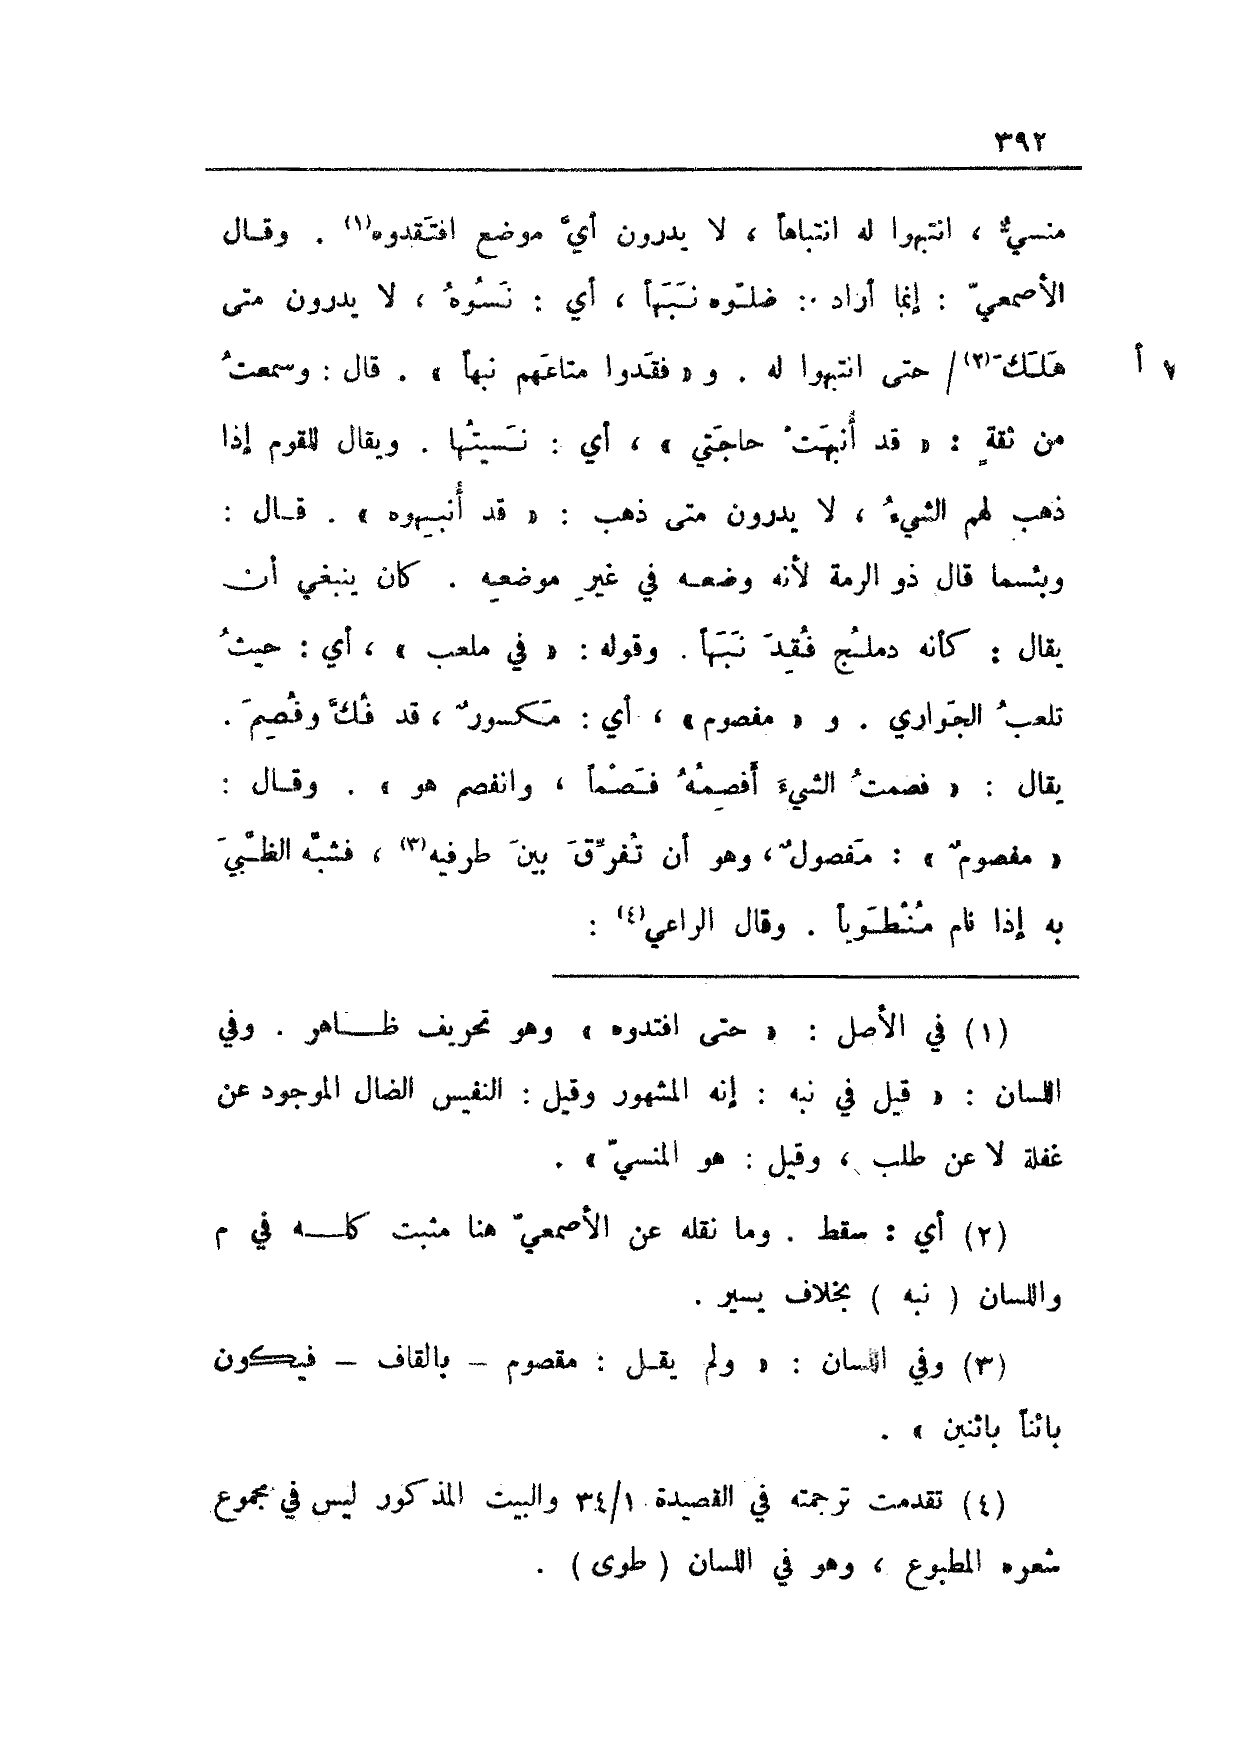 ٣٩٢
منسيٌّ ، انتبهوا له انتباهاً ، لا يدرون أيَّ موضع افتَقدوه(١) . وقـال
الأصمعيّ : إنما أراد : ضلـّوه نـَبَهاً ، أي : نـَسُوهُ ، لا يدرون متى
هَلـَكَ(٢)/ حتى انتبهوا له . و « فقَدوا متاعَهم نبهاً » . قال : وسمعتُ
٧ أ
من ثقةٍ : « قد أُنبهَتْ حاجَتي » ، أي : نـَسيتُها . ويقال للقوم إذا
ذهب لهم الشيءُ ، لا يدرون متى ذهب : « قد أُنبـِهوه » . قـال :
وبئسما قال ذو الرمة لأنه وضعـه في غيرِ موضعِه . كان ينبغي أن
يقال : كأنه دملـُج فـُقِدَ نـَبَهاً . وقوله : « في ملعب » ، أي : حيثُ
تلعبُ الجَواري . و « مفصوم » ، أي : مَكسورٌ ، قد فـُكَّ وفـُصِمَ .
يقال : « فصمتُ الشيءَ أَفصِمُهُ فـَصْماً ، وانفصم هو » . وقـال :
« مفصومٌ » : مَفصولٌ ، وهو أن تـُفرِّقَ بينَ طرفيه(٣) ، فشبَّه الظـَّبيَ
به إذا نام مُنـْطـَوياً . وقال الراعي(٤) :
(١) في الأصل : « حتى افتدوه » وهو تحريف ظـاهر . وفي
اللسان : « قيل في نبه : إنه المشهور وقيل : النفيس الضال الموجود عن
غفلة لا عن طلب ، وقيل : هو المنسيّ » .
(٢) أي : سقط . وما نقله عن الأصمعيّ هنا مثبت كلـه في م
واللسان ( نبه ) بخلاف يسير .
(٣) وفي اللسان : « ولم يقـل : مقصوم – بالقاف – فيكون
بائناً باثنين » .
(٤) تقدمت ترجمته في القصيدة ٣٤/١ والبيت المذكور ليس في مجموع
شعره المطبوع ، وهو في اللسان ( طوى ) .